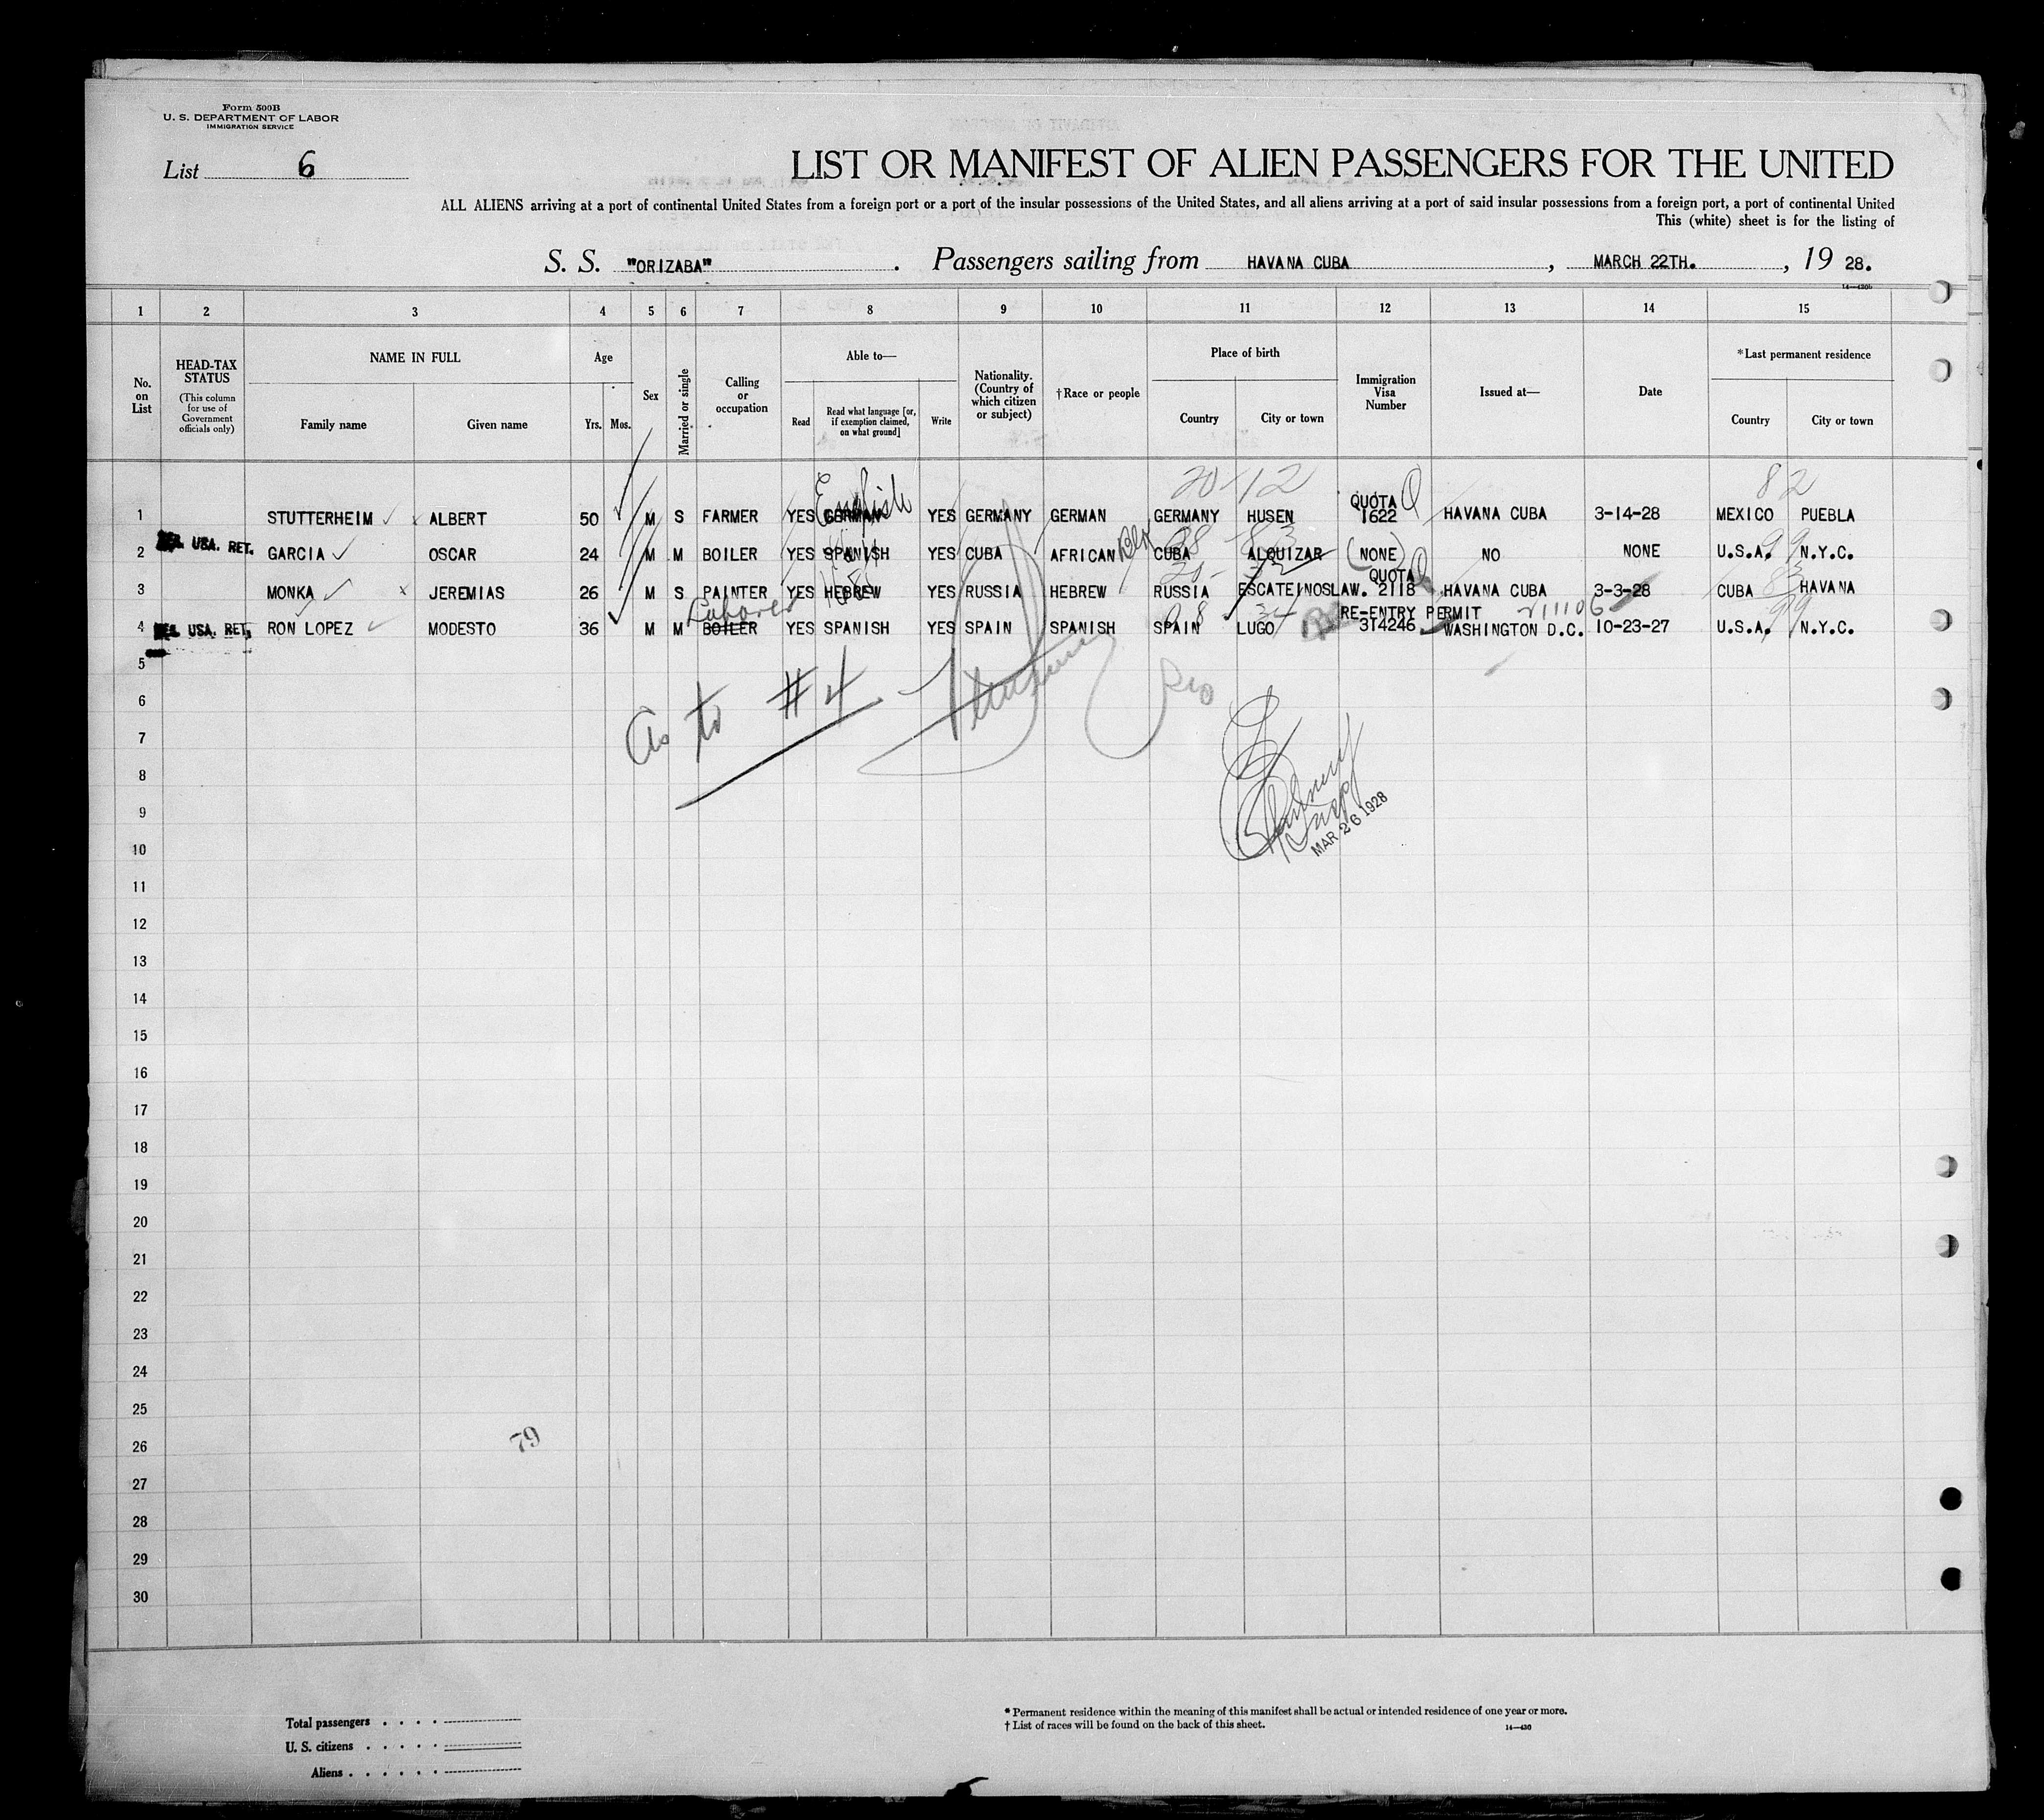 Form 500B
U. S. DEPARTMENT OF LABOR
IMMIGRATION SERVICE
List 6
LIST OR MANIFEST OF ALIEN PASSENGERS FOR THE UNITED
ALL ALIENS arriving at a port of continental United States from a foreign port or a port of the insular possessions of the United States, and all aliens arriving at a port of said insular possessions from a foreign port, a port of continental United
This (white) sheet is for the listing of
S. S. "ORIZABA" . Passengers sailing from HAVANA CUBA , MARCH 22TH. , 19 28.
1 2 3 4 5 6 7 8 9 10 11 12 13 14 15
No. on List
HEAD-TAX STATUS (This column for use of Government officials only)
NAME IN FULL
Family name Given name
Age
Yrs. Mos.
Sex
Married or single
Calling or occupation
Able to—
Read Read what language [or, if exemption claimed, on what ground] Write
Nationality. (Country of which citizen or subject)
†Race or people
Place of birth
Country City or town
Immigration Visa Number
Issued at—
Date
*Last permanent residence
Country City or town
20 12 82
English QUOTA Q
1 STUTTERHEIM ALBERT 50 M S FARMER YES GERMAN YES GERMANY GERMAN GERMANY HUSEN 1622 HAVANA CUBA 3-14-28 MEXICO PUEBLA
2 USA. RET. GARCIA OSCAR 24 M M BOILER YES SPANISH YES CUBA AFRICAN Blk CUBA ALQUIZAR (NONE) NO NONE U.S.A. N.Y.C.
QUOTA
3 MONKA x JEREMIAS 26 M S PAINTER YES HEBREW YES RUSSIA HEBREW RUSSIA ESCATEINOSLAW. 2118 HAVANA CUBA 3-3-28 CUBA HAVANA
Laborer RE-ENTRY PERMIT 211106
4 USA. RET. RON LOPEZ MODESTO 36 M M BOILER YES SPANISH YES SPAIN SPANISH SPAIN LUGO 314246 WASHINGTON D.C. 10-23-27 U.S.A. N.Y.C.
5
6
As to #4
7
8
9
MAR 26 1928
10
11
12
13
14
15
16
17
18
19
20
21
22
23
24
25
26
79
27
28
29
30
Total passengers . . . .
U. S. citizens . . . . .
Aliens . . . . . .
* Permanent residence within the meaning of this manifest shall be actual or intended residence of one year or more.
† List of races will be found on the back of this sheet.
14—430